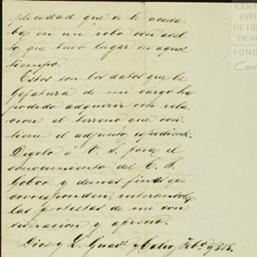 plicidad que se le acusa-
ba en un robo con asal-
to que tuvo lugar en aquel
tiempo.
Estos son los datos que la
Gefatura de mi cargo ha
podido adquirir con rela-
cion al terreno que con-
tiene el adjunto espediente.
Digolo a V. S. para el
conocimiento del E. S.
Gobor y demas fines que
correspondan, reiterandole
las protestas de mi con-
sideracion y aprecio.
Dios y L.
CEN
EST
DE HI
DE M
FUND